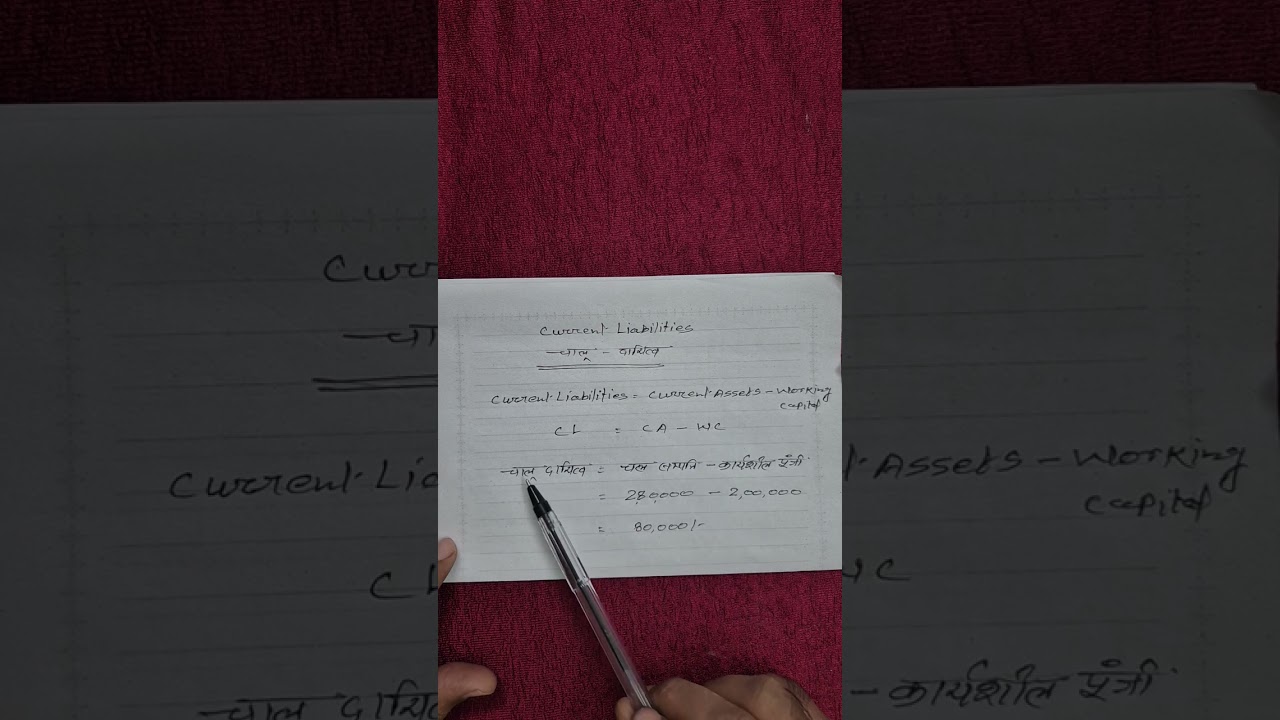 Current Liabilities
चालू - दायित्व
Current Liabilities = Current Assets - Working Capital
CL = CA - WC
चालू दायित्व = चल सम्पत्ति - कार्यशील पूंजी
= 2,80,000 - 2,00,000
= 80,000/-